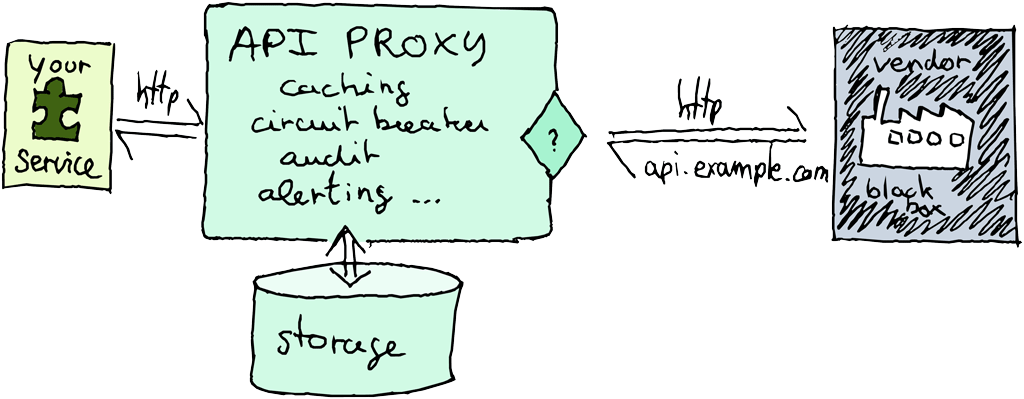 your
service
http
API PROXY
caching
circuit breaker
audit
alerting ...
?
storage
http
api.example.com
vendor
black
box